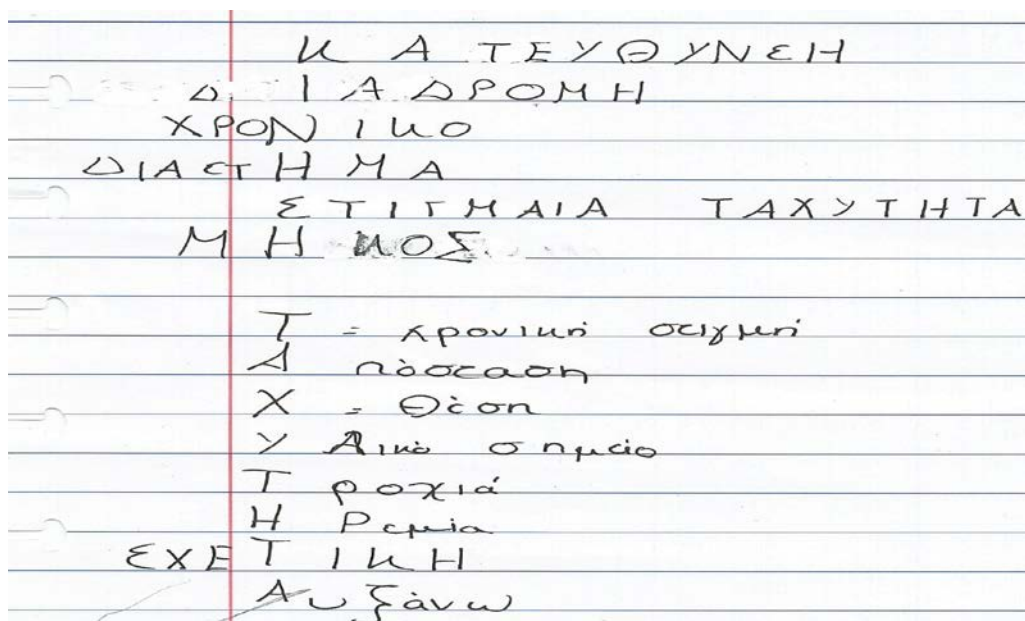 Κ Α ΤΕΥΘΥΝΣΗ
Δ ΙΑΔΡΟΜΗ
ΧΡΟΝΙΚΟ
ΔΙΑΣΤΗΜΑ
ΣΤΙΓΜΑΙΑ ΤΑΧΥΤΗΤΑ
ΜΗΚΟΣ
Τ = χρονική στιγμή
Α πόσταση
Χ = Θέση
Υ λικό σημείο
Τ ροχιά
Η Ρεμία
ΣΧΕΤΙΚΗ
Αυξάνω